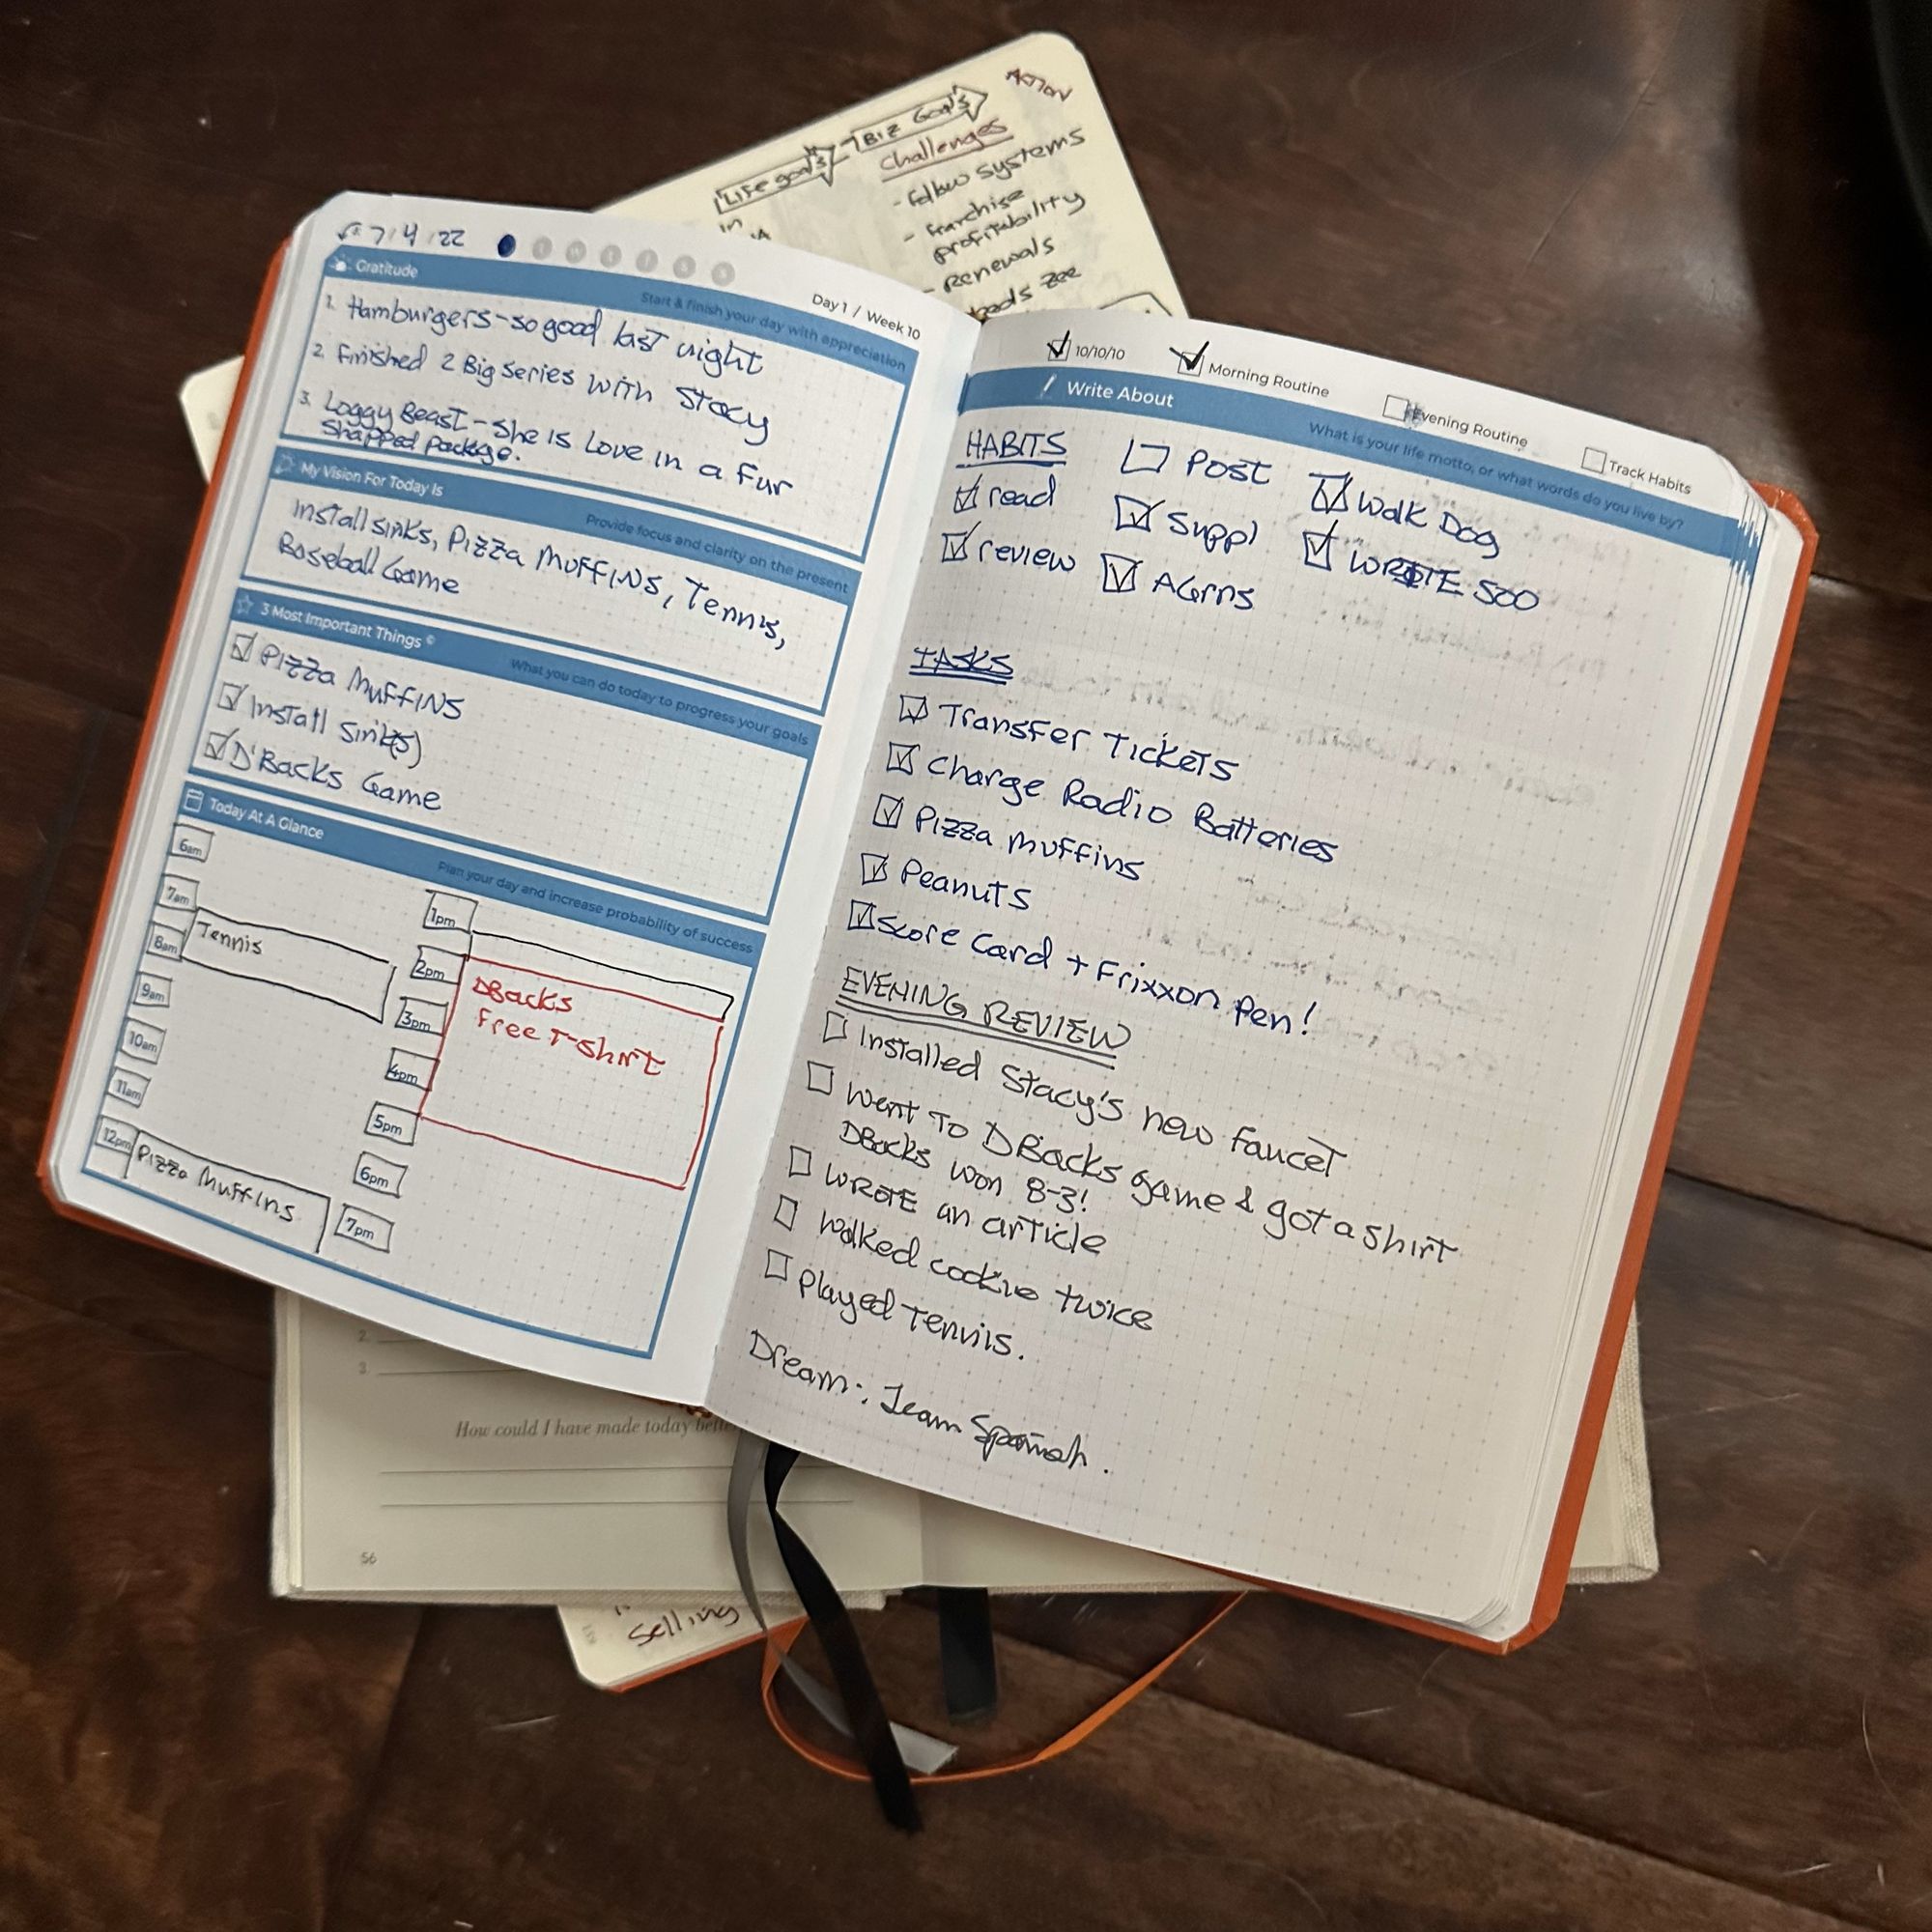 ACTION
Life goals
Biz Goals
Challenges
- follow systems
- franchise
profitability
- Renewals
zee
7/4/22
Day 1 / Week 10
Gratitude
Start & finish your day with appreciation
1. Hamburgers - so good last night
2. Finished 2 Big Series with Stacy
3. Loggy Beast - She is Love in a fur
shapped package.
My Vision For Today Is
Provide focus and clarity on the present
Install sinks, Pizza Muffins, Tennis,
Baseball Game
3 Most Important Things ©
What you can do today to progress your goals
Pizza Muffins
Install Sink(s)
D'Backs Game
Today At A Glance
Plan your day and increase probability of success
6am
7am
Tennis
8am
9am
10am
11am
12pm
Pizza Muffins
1pm
2pm
DBacks
Free T-shirt
3pm
4pm
5pm
6pm
7pm
10/10/10
Morning Routine
Evening Routine
Track Habits
Write About
What is your life motto, or what words do you live by?
HABITS
Post
Walk Dog
read
Suppl
WROTE 500
review
Acorns
TASKS
Transfer Tickets
Charge Radio Batteries
Pizza Muffins
Peanuts
Score Card + Frixxon Pen!
EVENING REVIEW
Installed Stacy's new faucet
Went To DBacks game & got a shirt
DBacks won 8-3!
WROTE an article
Walked cookie twice
Played Tennis.
Dream: Learn Spanish.
2.
3.
How could I have made today
56
Selling